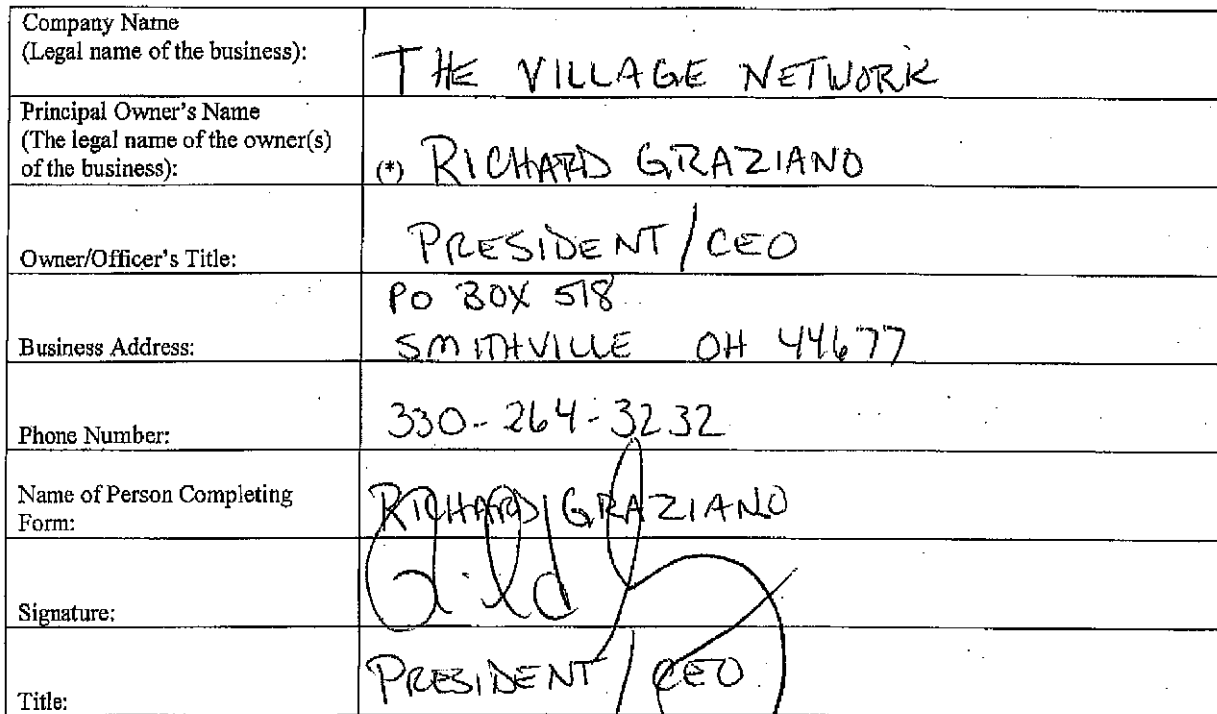 Company Name
(Legal name of the business):
THE VILLAGE NETWORK
Principal Owner's Name
(The legal name of the owner(s)
of the business):
(*) RICHARD GRAZIANO
Owner/Officer's Title:
PRESIDENT/CEO
Business Address:
PO BOX 518
SMITHVILLE OH 44677
Phone Number:
330-264-3232
Name of Person Completing
Form:
RICHARD GRAZIANO
Signature:
Title:
PRESIDENT/CEO